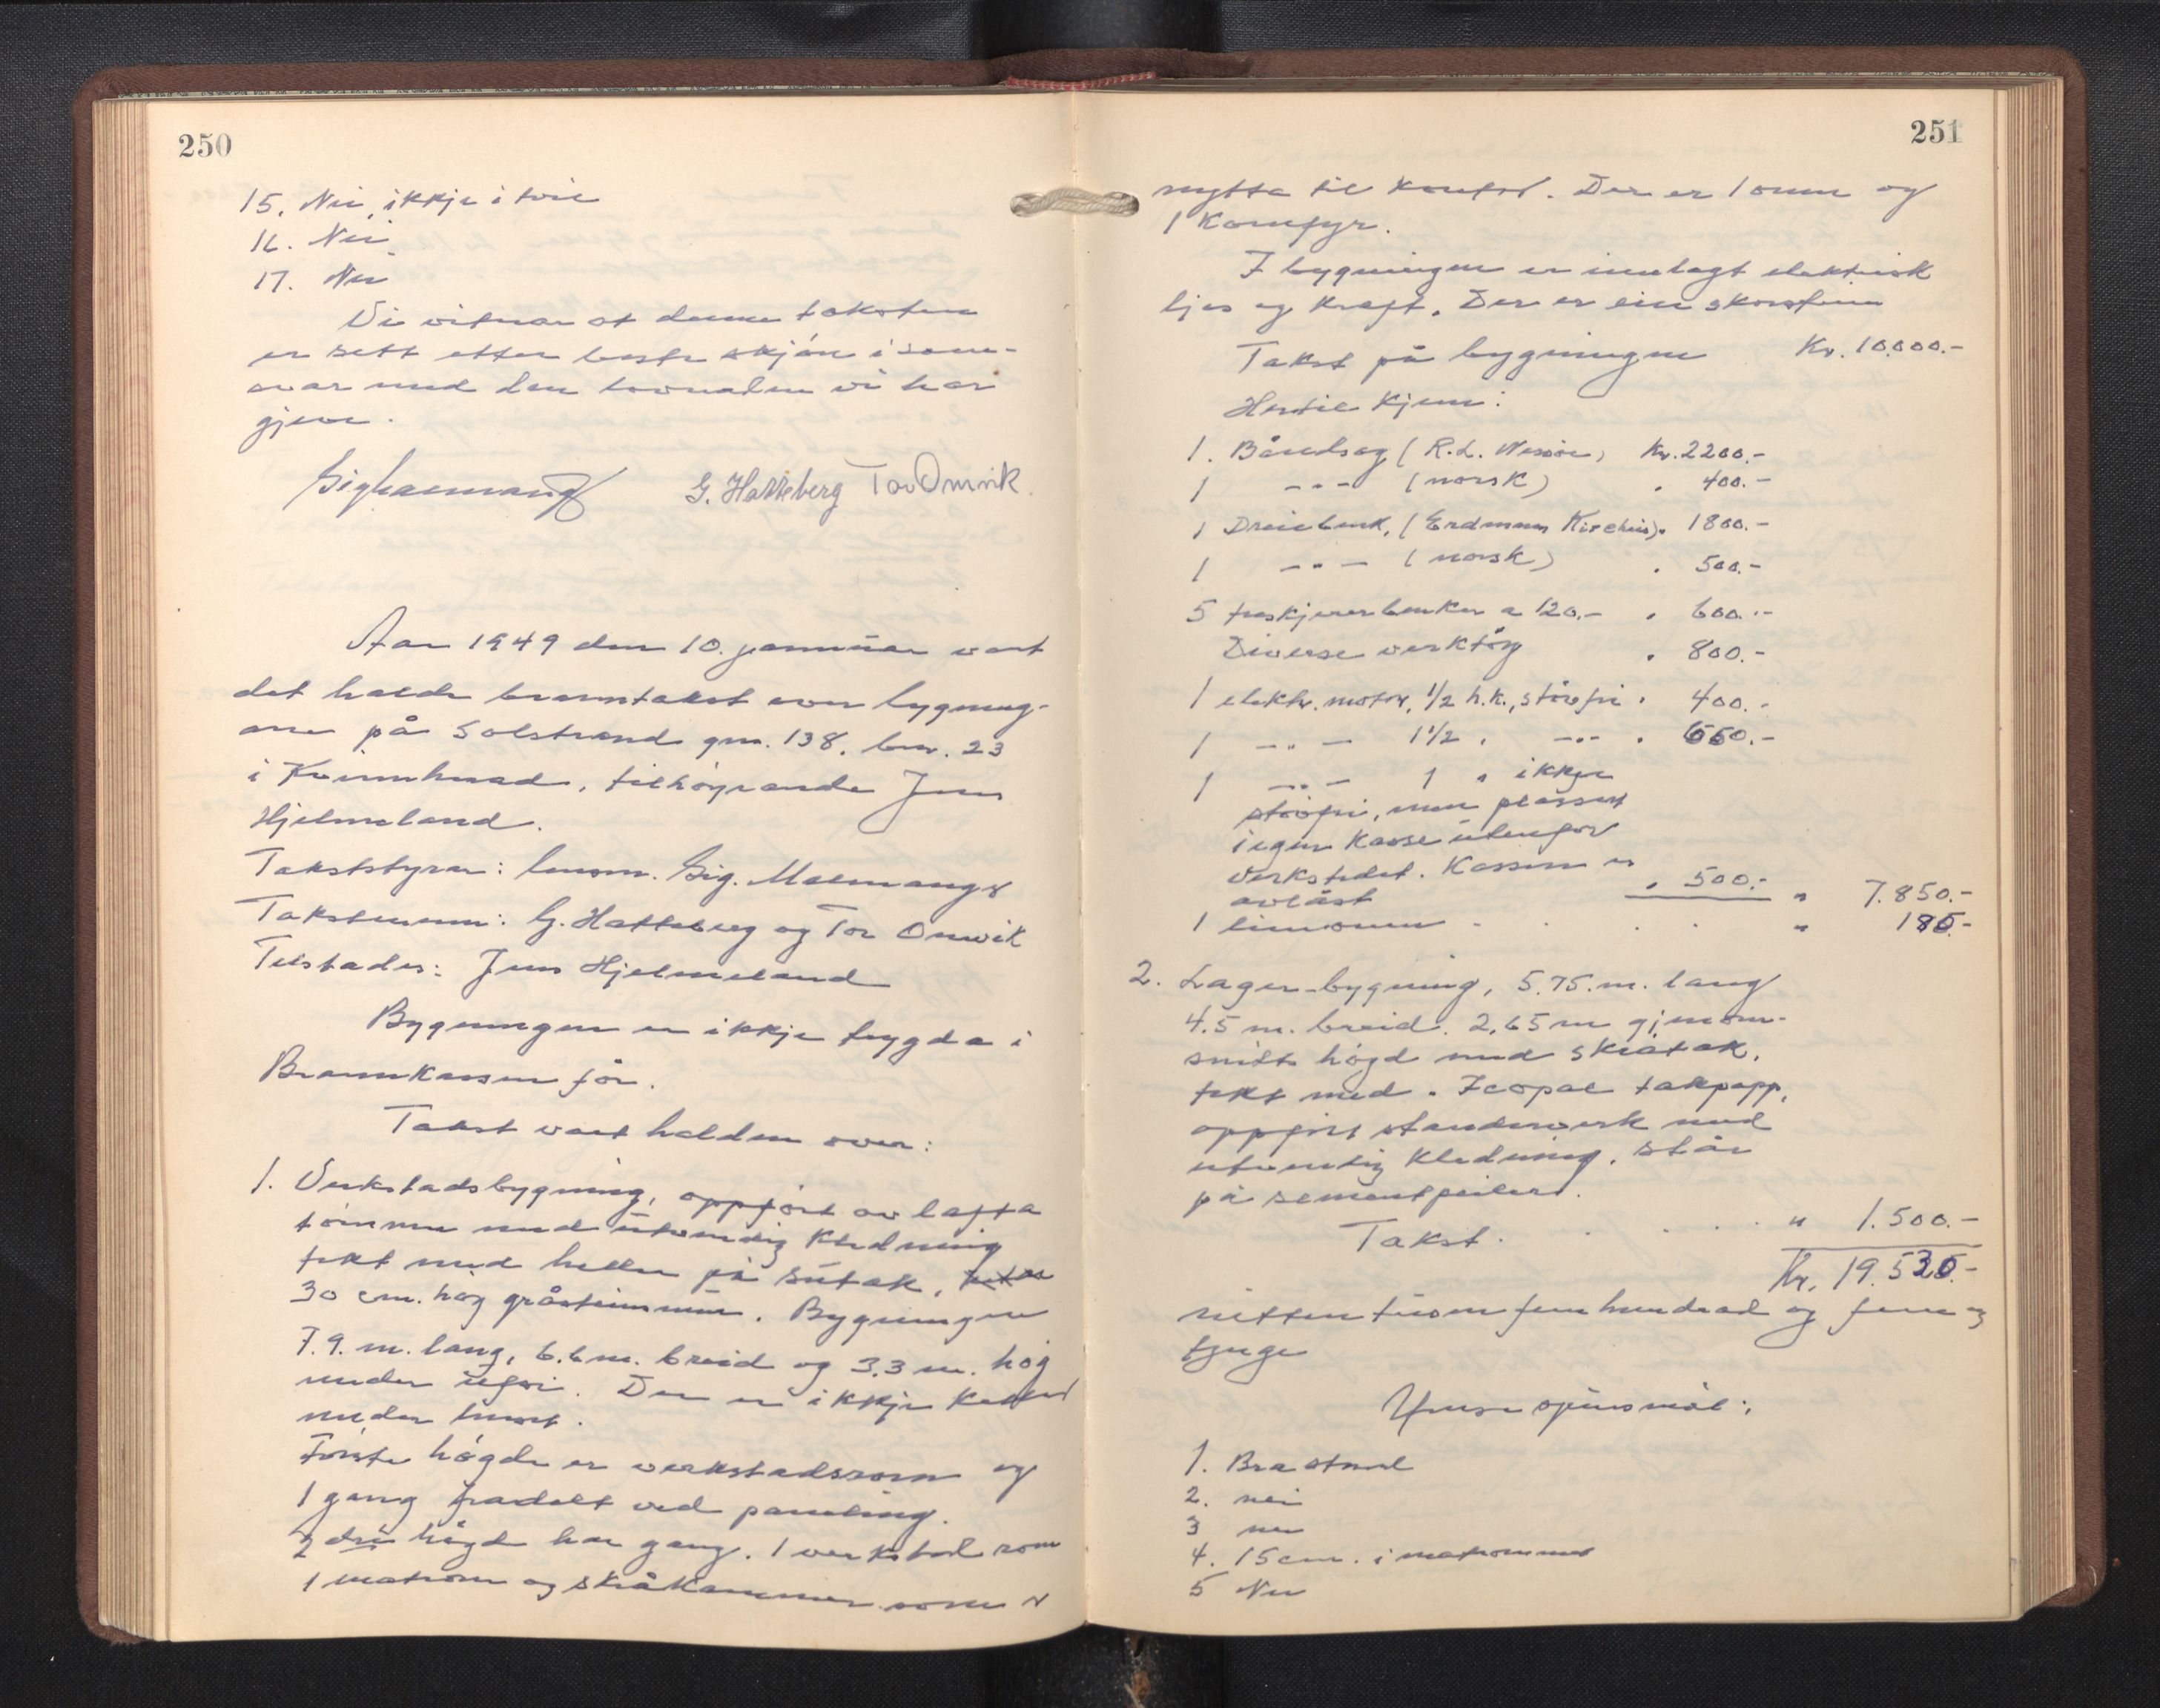 250
15. Nei, ikkje i tvil
16. Nei
17. Nei
Vi vitnar at denne taksten
er sett etter beste skjön i sam-
svar med den lovnaden vi har
gjeve.
Sig Malmanger G. Hatteberg Tor Omvik.
Aar 1949 den 10. januar vart
det halde branntakst over bygning-
ane på Solstrand gnr. 138, bnr. 23
i Kvinnherad, tilhøyrande Jens
Hjelmeland.
Takststyrar: lensm. Sig. Malmanger
Takstmenn: G. Hatteberg og Tor Omvik
Tilstades: Jens Hjelmeland
Bygningen er ikkje trygda i
Brannkassen för.
Takst vart halden over:
1. Verkstadsbygning, oppfört av lafta
tömmer med utvendig kledning
tekt med heller på sutak,
30 cm. høg gråsteinsmur. Bygningen
7.9. m. lang, 6.6 m. breid og 3,3 m. høg
under ufsi. Der er ikkje kjeller
under huset.
Förste högde er verkstadsrom og
1 gang fradelt ved paneling.
2 dre högde har gang. 1 verkstad rom
1 matrom og skråkammer som er
251
nytta til kontor. Der er 1 omn og
1 Komfyr.
I bygningen er innlagt elektrisk
ljos og kraft. Der er ein skorstein
Takst på bygningen Kr. 10.000.-
Hertil kjem:
1. Båndsag (R.L. ) Kr. 2200.-
1 -"- (norsk) " 400.-
1 Dreiebenk, (Erdmann Kircheis) " 1800.-
1 -"- (norsk) " 500.-
5 treskjærerbenker a 120.- " 600.-
Diverse verktöy " 800.-
1 elektr. motor, 1/2 h.k., stövfri " 400.-
1 -"- 1 1/2 " -"- " 650.-
1 -"- 1 " ikkje
stövfri, men plassert
i egen kasse utenfor
verkstedet. Kassen er
avlåst " 500.- " 7.850.-
1 limomn . . . . " 185.-
2. Lager-bygning, 5.75. m. lang
4.5 m. breid. 2,65 m gjenom-
snitts högd med skråtak,
tekt med. Icopal takpapp,
oppfört standerverk med
utvendig kledning. står
på sementpeilere.
Takst. . . . . " 1.500.-
Kr. 19.535.-
nitten tusen fem hundrad og fem og
tjuge
Ymse spursmål:
1. Bra stand
2. nei
3 nei
4. 15 cm. i matrommet
5 Nei